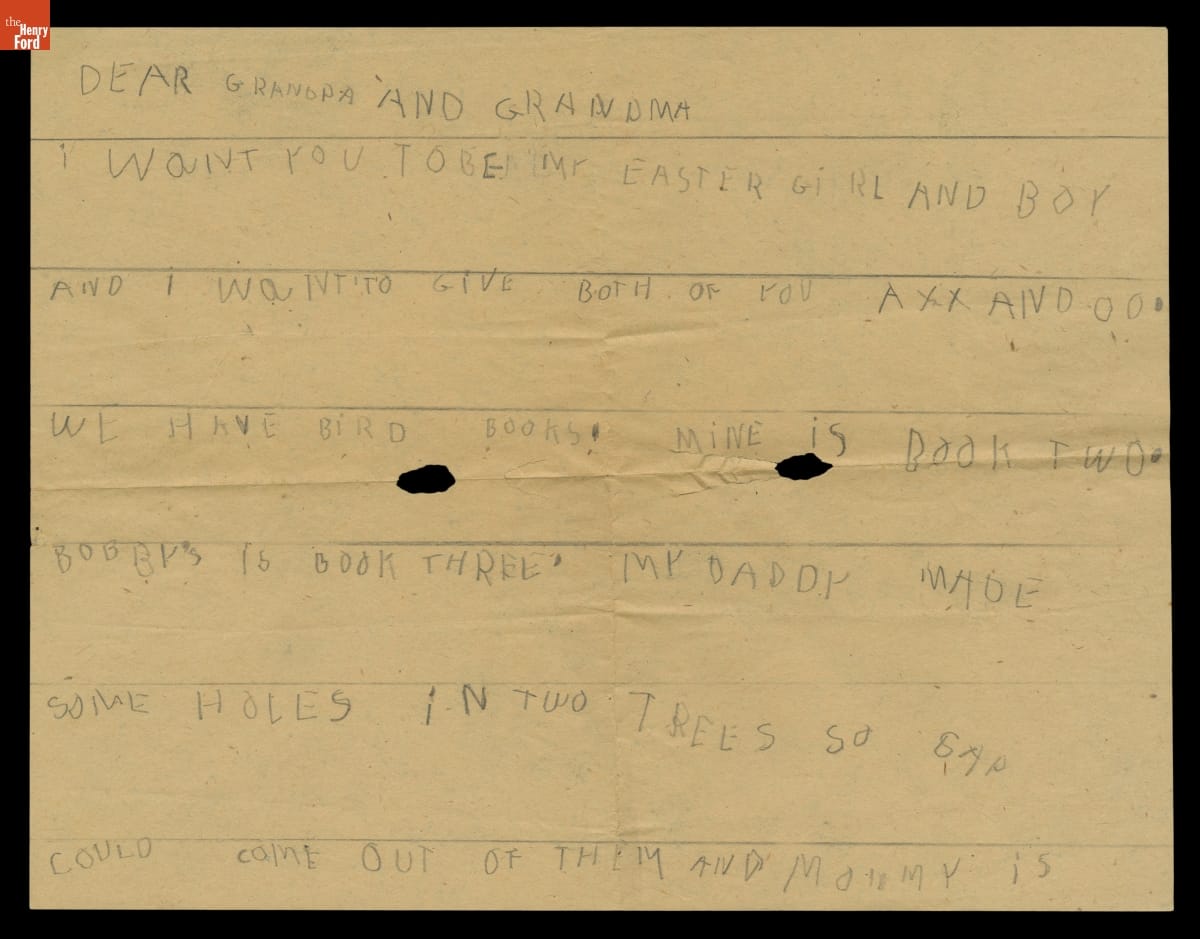 the
Henry
Ford
DEAR GRANDPA AND GRANDMA
i WaNT YOU TO BE MY EASTER GiRL AND BOY
AND i WaNT TO GiVE BOTH OF YOU A XX AND OO.
WE HAVE BiRD BOOKS. MiNE iS BOOK TWO.
BOBBY'S IS BOOK THREE. MY DADDY MADE
SOME HOLES iN TWO TREES SO SAP
COULD COME OUT OF THEM AND MOMMY iS